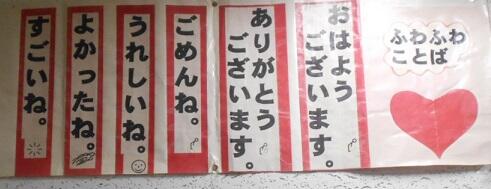 ふわふわ
ことば
おはよう
ございます。
ありがとう
ございます。
ごめんね。
うれしいね。
よかったね。
すごいね。